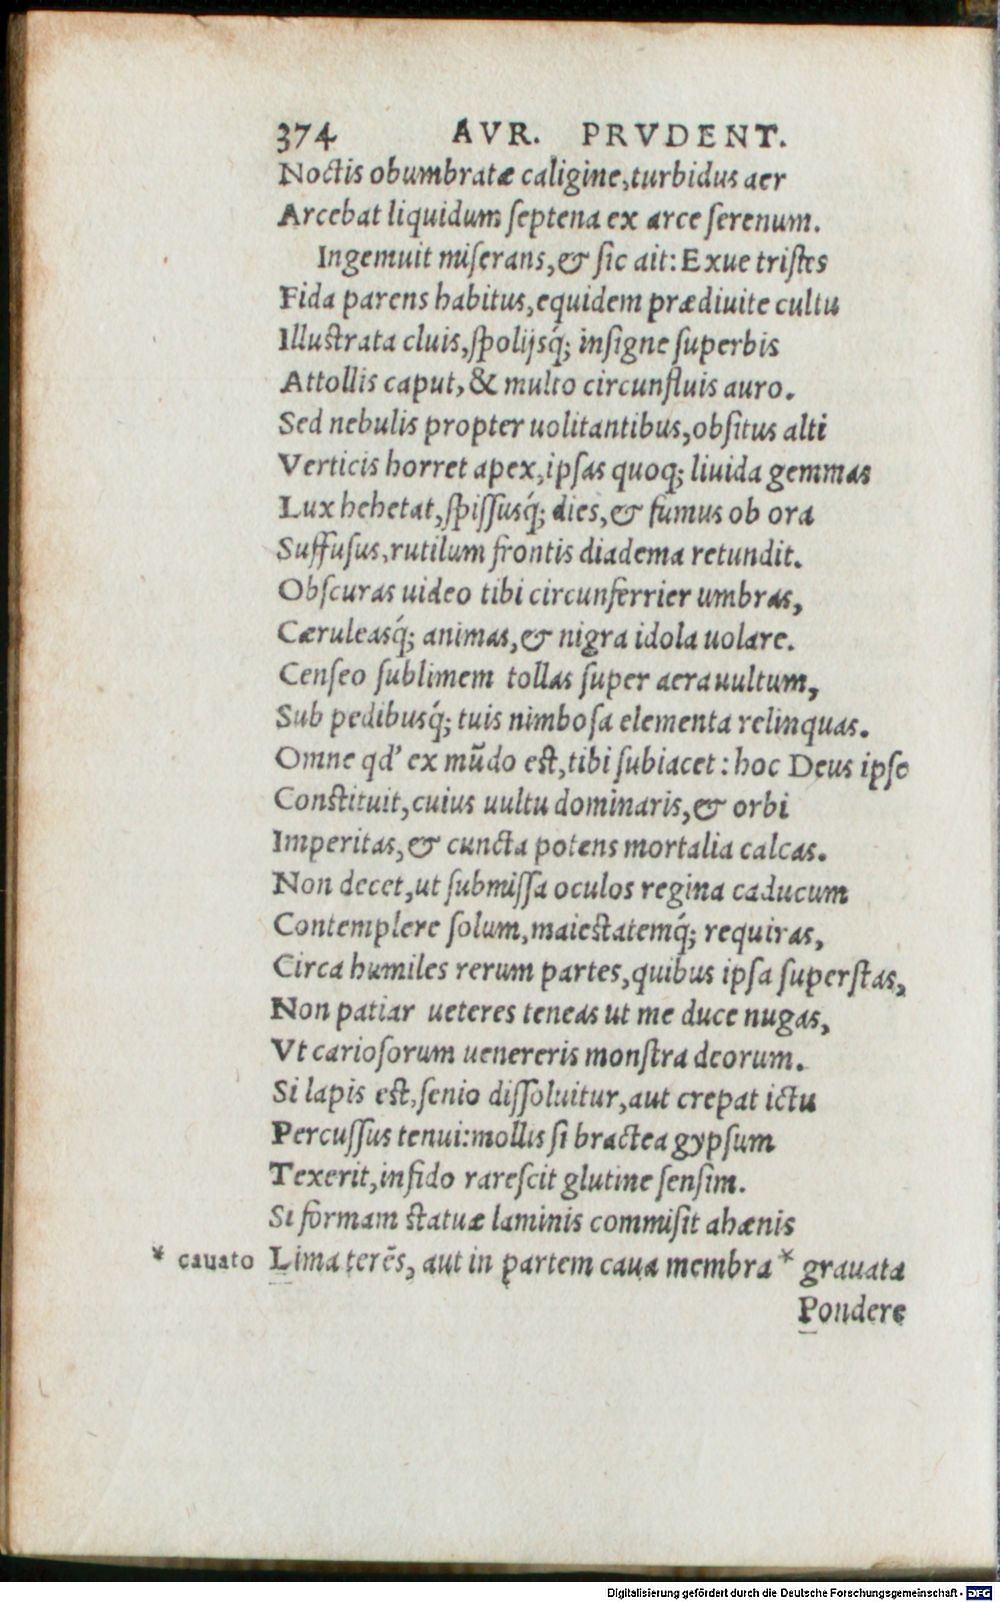 374 AVR. PRVDENT.
Noctis obumbratæ caligine, turbidus aer
Arcebat liquidum ſeptena ex arce ſerenum.
Ingemuit miſerans, & ſic ait: Exue triſtes
Fida parens habitus, equidem prædiuite cultu
Illuſtrata cluis, ſpolijsq́; inſigne ſuperbis
Attollis caput, & multo circunfluis auro.
Sed nebulis propter uolitantibus, obſitus alti
Verticis horret apex, ipſas quoq; liuida gemmas
Lux hebetat, ſpiſſusq́; dies, & fumus ob ora
Suffuſus, rutilum frontis diadema retundit.
Obſcuras uideo tibi circunferrier umbras,
Cæruleasq́; animas, & nigra idola uolare.
Cenſeo ſublimem tollas ſuper aera uultum,
Sub pedibusq́; tuis nimboſa elementa relinquas.
Omne qd' ex mũdo eſt, tibi ſubiacet: hoc Deus ipſe
Conſtituit, cuius uultu dominaris, & orbi
Imperitas, & cuncta potens mortalia calcas.
Non decet, ut ſubmiſſa oculos regina caducum
Contemplere ſolum, maieſtatemq́; requiras,
Circa humiles rerum partes, quibus ipſa ſuperſtas,
Non patiar ueteres teneas ut me duce nugas,
Vt carioſorum uenereris monſtra deorum.
Si lapis eſt, ſenio diſſoluitur, aut crepat ictu
Percuſſus tenui: mollis ſi bractea gypſum
Texerit, infido rareſcit glutine ſenſim.
Si formam ſtatuæ laminis commiſit ahænis
* cauato Lima terẽs, aut in partem caua membra * grauata
Pondere
Digitalisierung gefördert durch die Deutsche Forschungsgemeinschaft - DFG